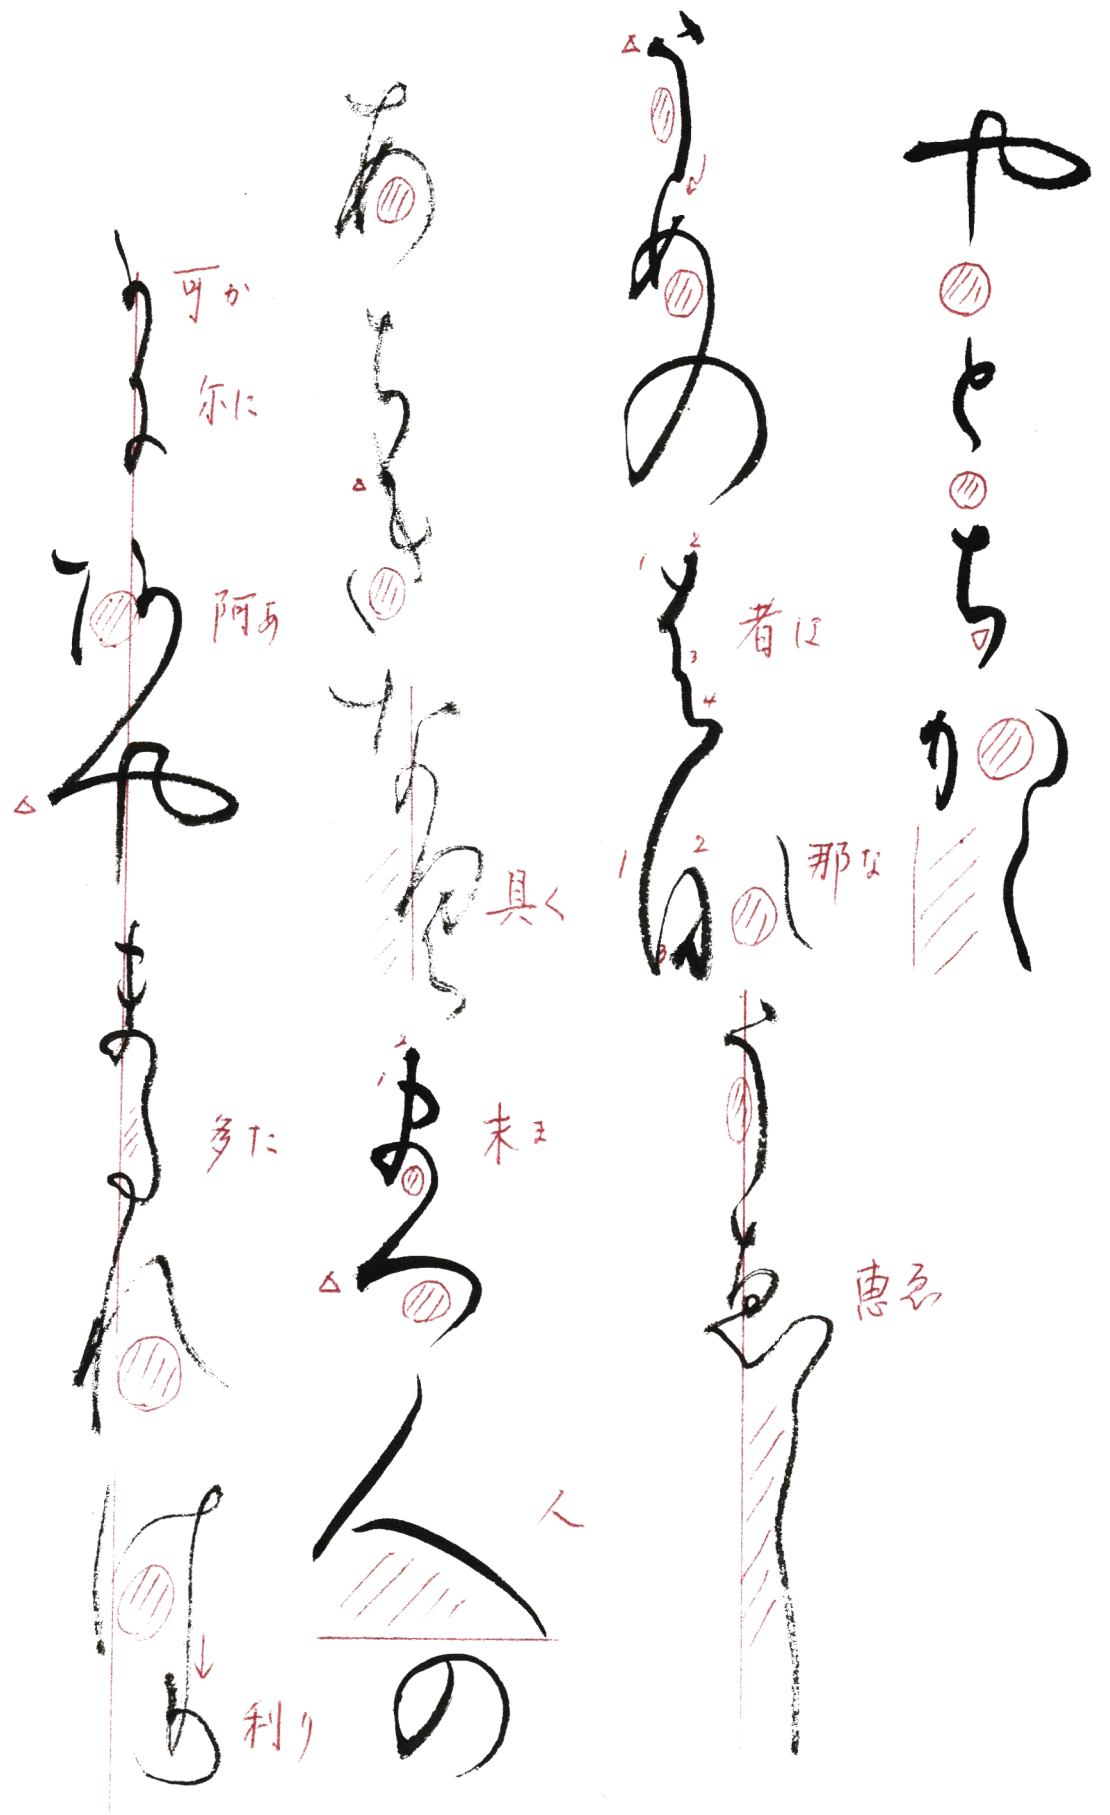 やとちかく
うめの者那
う恵し
あちきな具
末つ人の
可尓阿や
ま多れけ利
者は
那な
恵ゑ
具く
末ま
人
可か
尓に
阿あ
多た
利り